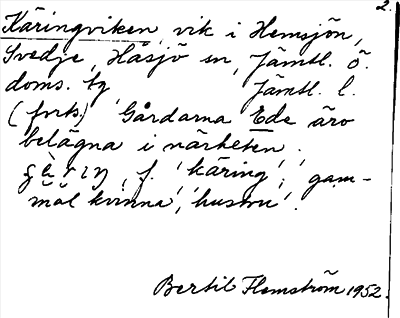 2.
Käringviken, vik i Hemsjön,
Svedje, Håsjö sn, Jämtl. ö.
doms. tg Jämtl. l.
(forts.) Gårdarna Ede äro
belägna i närheten.
f. 'käring', 'gam-
mal kvinna', 'hustru'.
Bertil Flemström 1952.